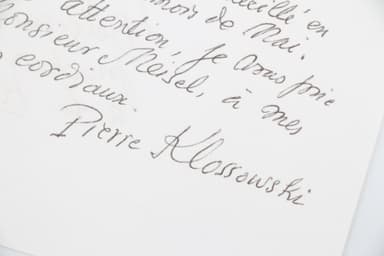 eillé en
mois de Mai.
attention, je vous prie
Monsieur Meisel, à mes
cordiaux.
Pierre Klossowski